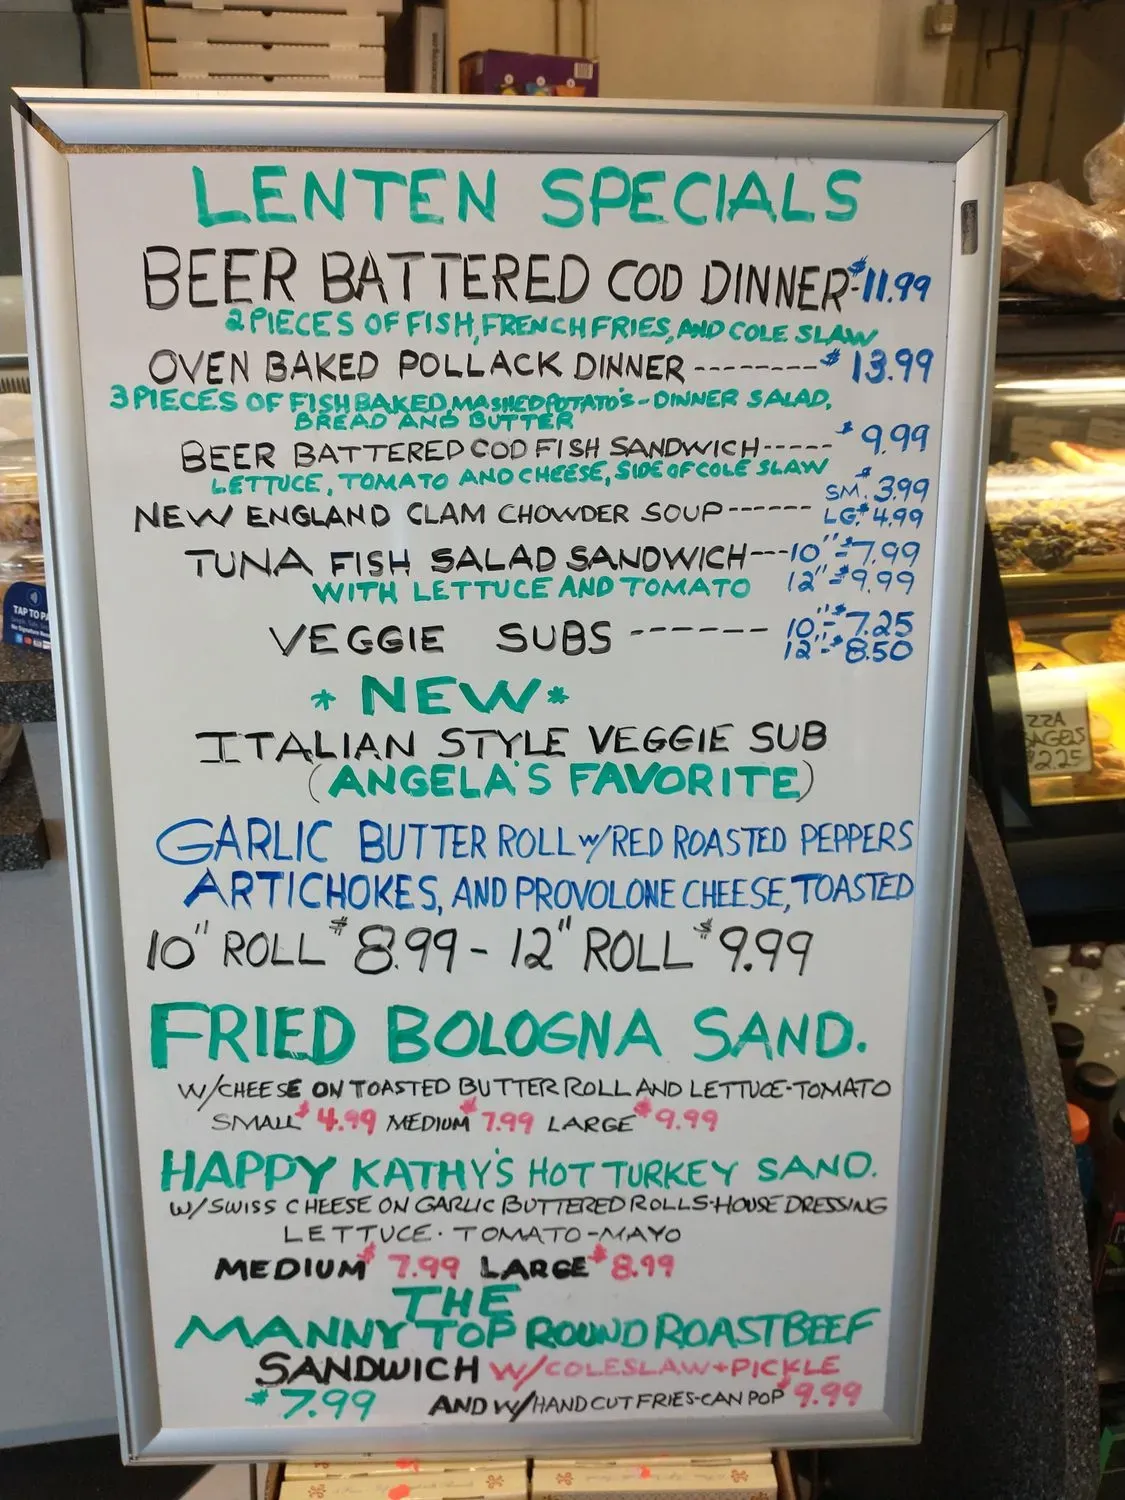 LENTEN SPECIALS
BEER BATTERED COD DINNER-$11.99
2 PIECES OF FISH, FRENCH FRIES, AND COLE SLAW
OVEN BAKED POLLACK DINNER --------$13.99
3 PIECES OF FISH BAKED, MASHED POTATO'S-DINNER SALAD,
BREAD AND BUTTER
BEER BATTERED COD FISH SANDWICH-----$9.99
LETTUCE, TOMATO AND CHEESE, SIDE OF COLE SLAW
SM. $3.99
NEW ENGLAND CLAM CHOWDER SOUP------ LG. $4.99
TUNA FISH SALAD SANDWICH---10"-$7.99
WITH LETTUCE AND TOMATO 12"-$9.99
VEGGIE SUBS ------ 10"-$7.25
12"-$8.50
*NEW*
ITALIAN STYLE VEGGIE SUB
(ANGELA'S FAVORITE)
GARLIC BUTTER ROLL w/RED ROASTED PEPPERS
ARTICHOKES, AND PROVOLONE CHEESE, TOASTED
10" ROLL $8.99 - 12" ROLL $9.99
FRIED BOLOGNA SAND.
W/CHEESE ON TOASTED BUTTER ROLL AND LETTUCE-TOMATO
SMALL $4.99 MEDIUM $7.99 LARGE $9.99
HAPPY KATHY'S HOT TURKEY SAND.
W/SWISS CHEESE ON GARLIC BUTTERED ROLLS-HOUSE DRESSING
LETTUCE-TOMATO-MAYO
MEDIUM $7.99 LARGE $8.99
THE
MANNY TOP ROUND ROAST BEEF
SANDWICH W/COLESLAW+PICKLE
$7.99 AND W/HAND CUT FRIES-CAN POP $9.99
TAP TO PA
ZZA
BAGELS
$2.25